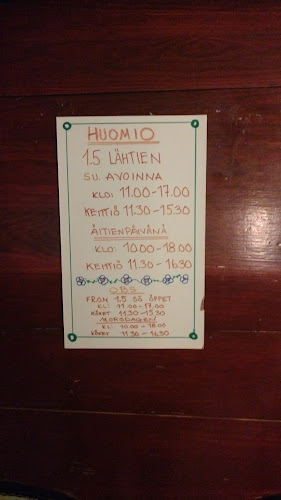 HUOMIO
1.5 LÄHTIEN
SU. AVOINNA
KLO: 11.00-17.00
KEITTIÖ 11.30-15.30
ÄITIENPÄIVÄNÄ
KLO: 10.00-18.00
KEITTIÖ 11.30-16.30
OBS
FRÅN 1.5 SÖ ÖPPET
KL: 11.00-17.00
KÖKET 11.30-15.30
MORSDAGEN
KL. 10.00-18.00
KÖKET 11.30-16.30